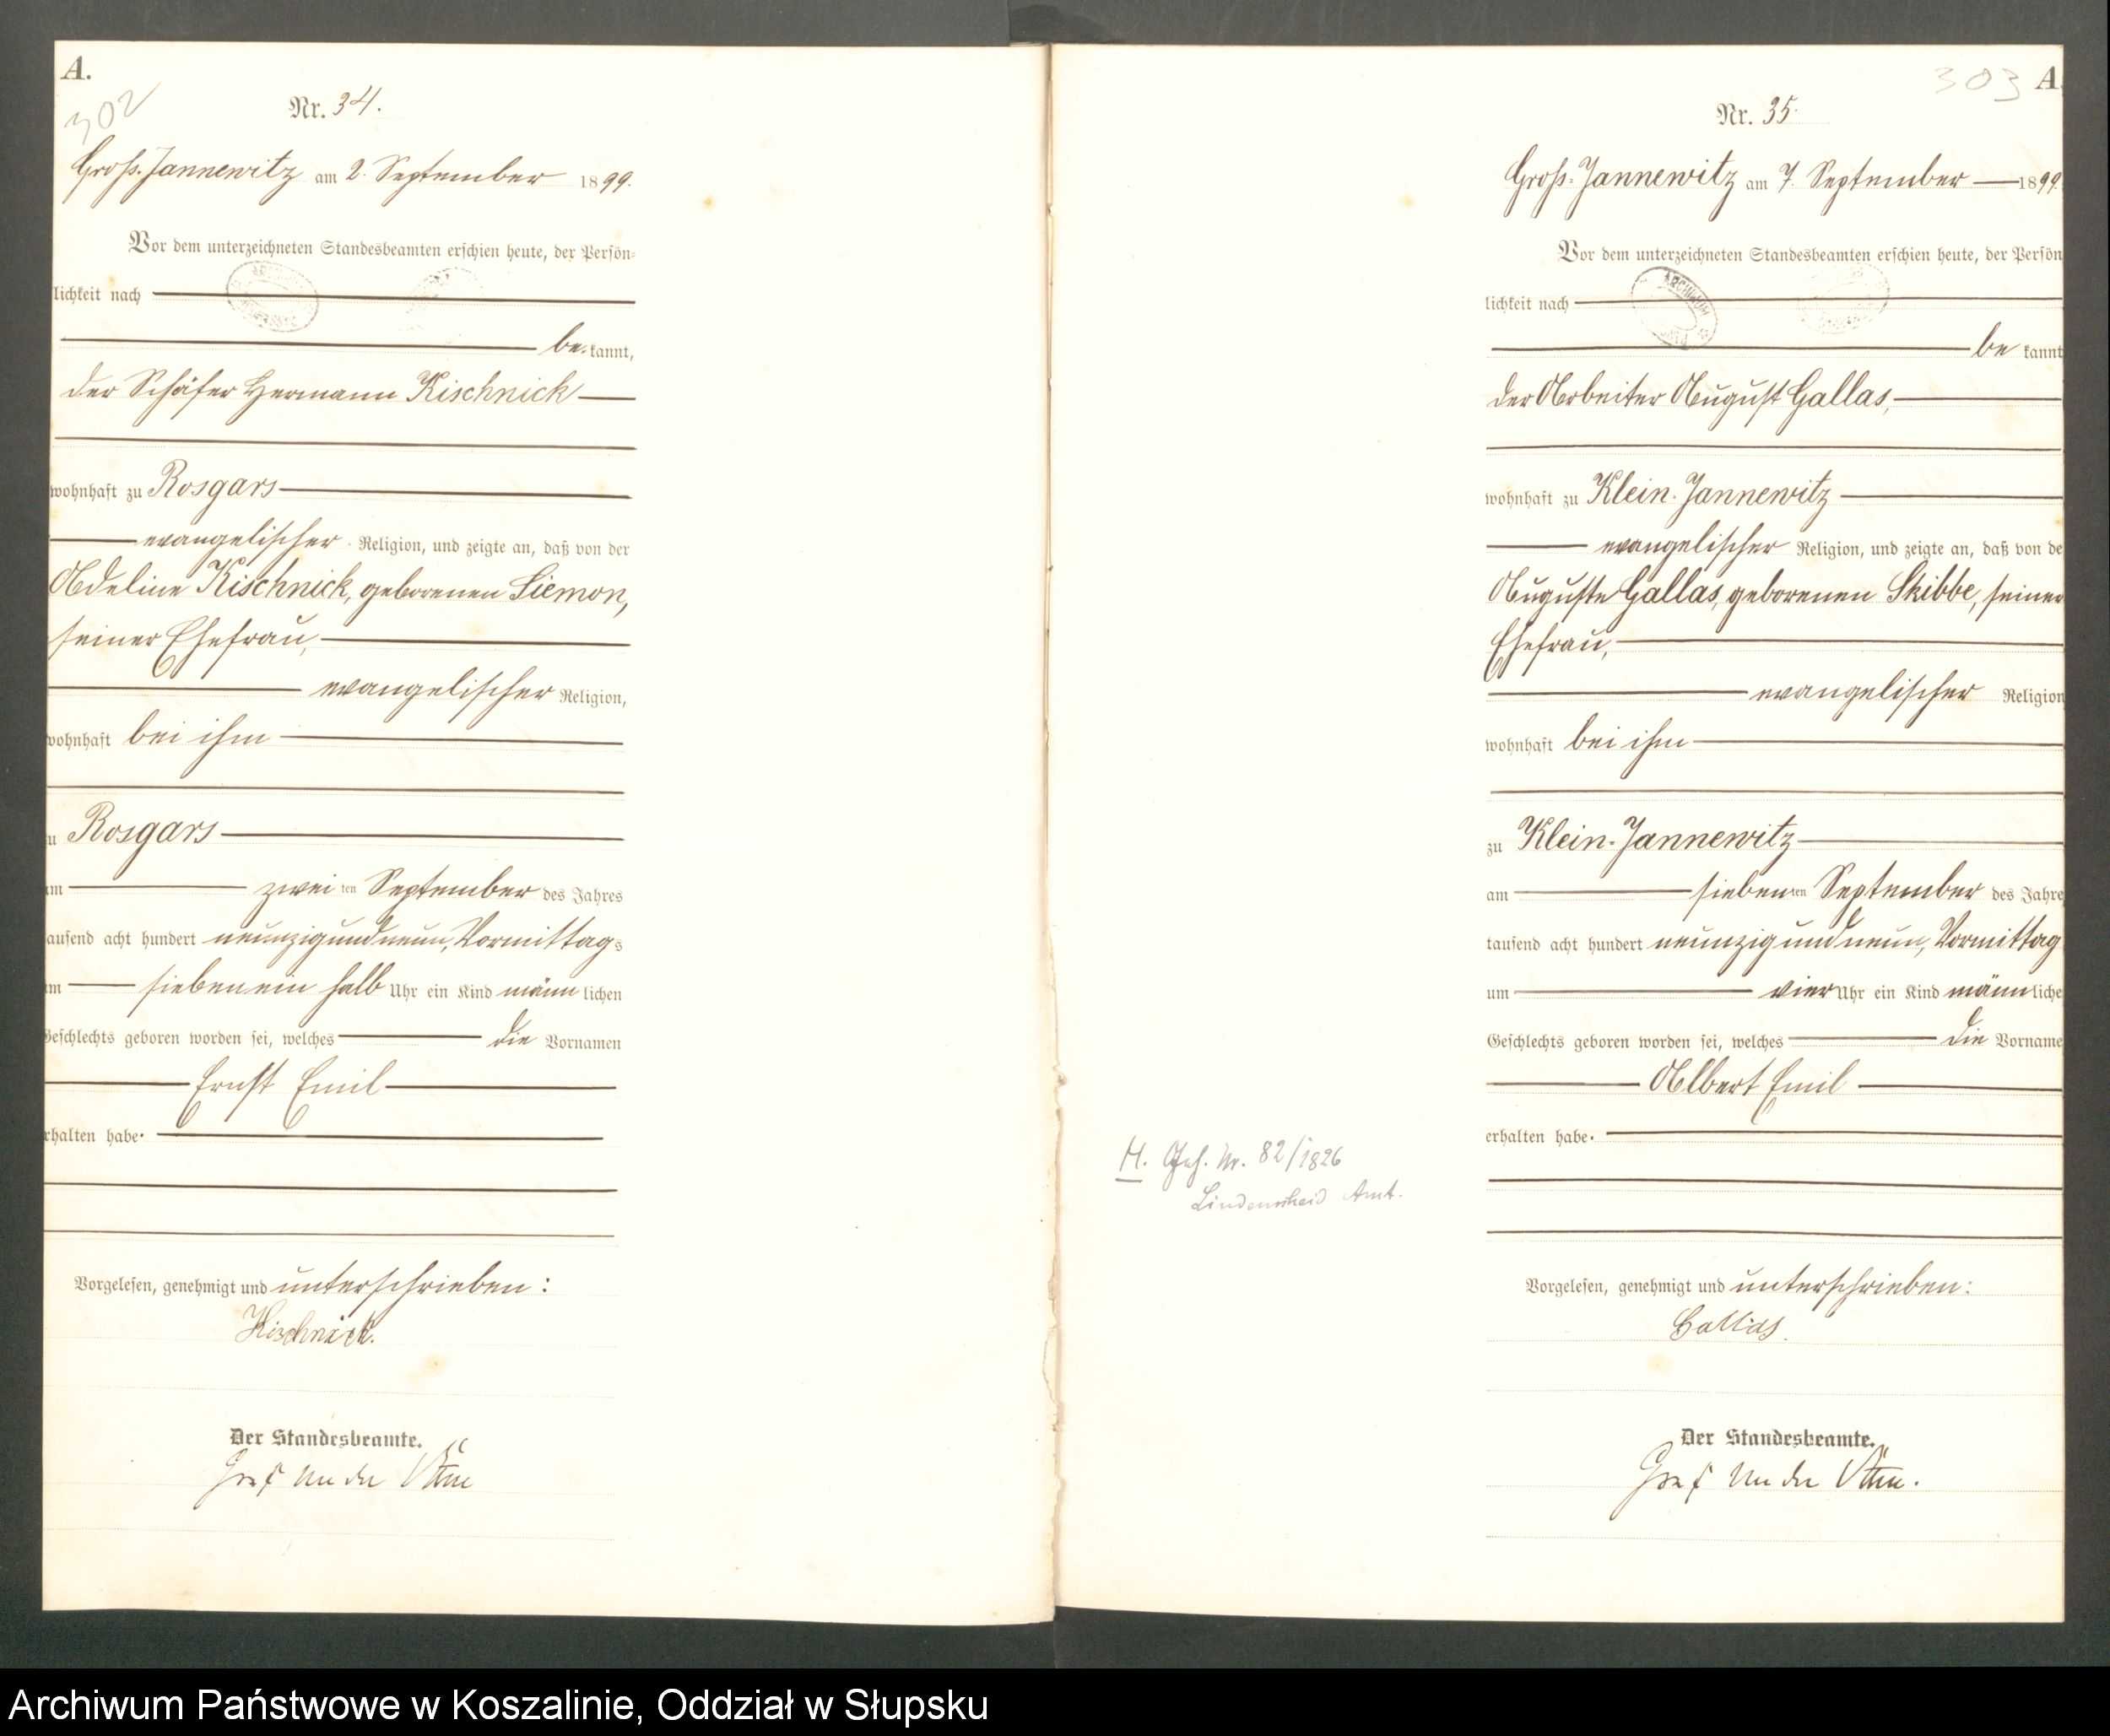 A.
302
Nr. 34.
Groß-Jannewitz am 2. September 1899.
Vor dem unterzeichneten Standesbeamten erschien heute, der Persön-
lichkeit nach
be kannt,
der Schäfer Hermann Kischnick
wohnhaft zu Rosgars
evangelischer Religion, und zeigte an, daß von der
Adeline Kischnick, geborenen Siemon,
seiner Ehefrau,
evangelischer Religion,
wohnhaft bei ihm
zu Rosgars
am zwei ten September des Jahres
tausend acht hundert neunzigundneun, Vormittags
um siebeneinhalb Uhr ein Kind männlichen
Geschlechts geboren worden sei, welches die Vornamen
Ernst Emil
erhalten habe.
Vorgelesen, genehmigt und unterschrieben:
Kischnick.
Der Standesbeamte.
Graf von der
303 A
Nr. 35.
Groß-Jannewitz am 7. September 1899.
Vor dem unterzeichneten Standesbeamten erschien heute, der Persön
lichkeit nach
ARCHIWUM
be kannt
der Arbeiter August Gallas,
wohnhaft zu Klein-Jannewitz
evangelischer Religion, und zeigte an, daß von de
Auguste Gallas, geborenen Skibbe, seiner
Ehefrau,
evangelischer Religion
wohnhaft bei ihm
zu Klein-Jannewitz
am siebenten September des Jahre
tausend acht hundert neunzigundneun, Vormittag
um vier Uhr ein Kind männliche
Geschlechts geboren worden sei, welches die Vorname
Albert Emil
erhalten habe.
H. Nr. 82/1926
Amt.
Vorgelesen, genehmigt und unterschrieben:
Gallas.
Der Standesbeamte.
Graf von der
Archiwum Państwowe w Koszalinie, Oddział w Słupsku